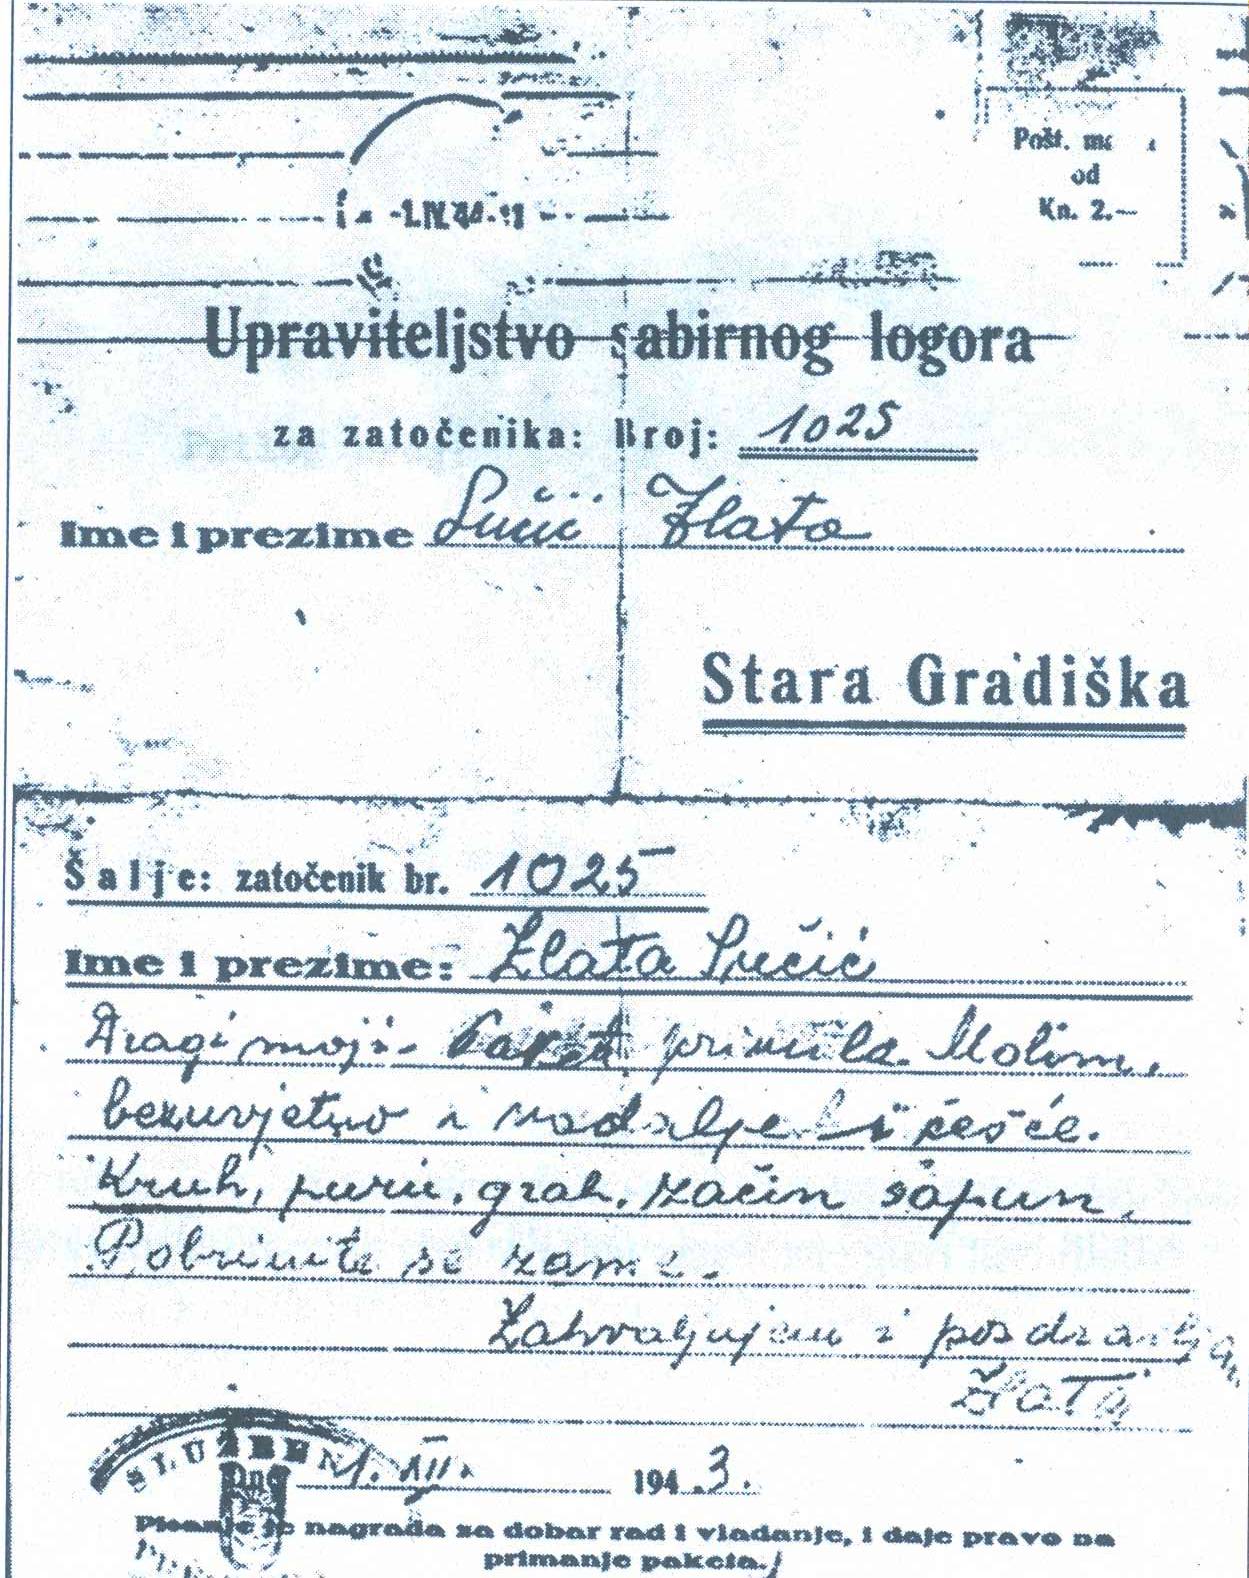 Pošt. ma
od
Kn. 2.—
-1.IV.44.-11
Upraviteljstvo sabirnog logora
za zatočenika: Broj: 1025
Ime i prezime Sučić Zlata
Stara Gradiška
Šalje: zatočenik br. 1025
Ime i prezime: Zlata Sučić
Dragi moji. Paket primila. Molim,
bezuvjetno i nadalje i češće.
Kruh, puru, grah, začin sapun.
Pobrinite se zame.
Zahvaljujem i pozdravljam
Zlata
SLUŽBEN
Dne 1. XII. 1943.
Pisanje je nagrada za dobar rad i vladanje, i daje pravo na
primanje paketa.